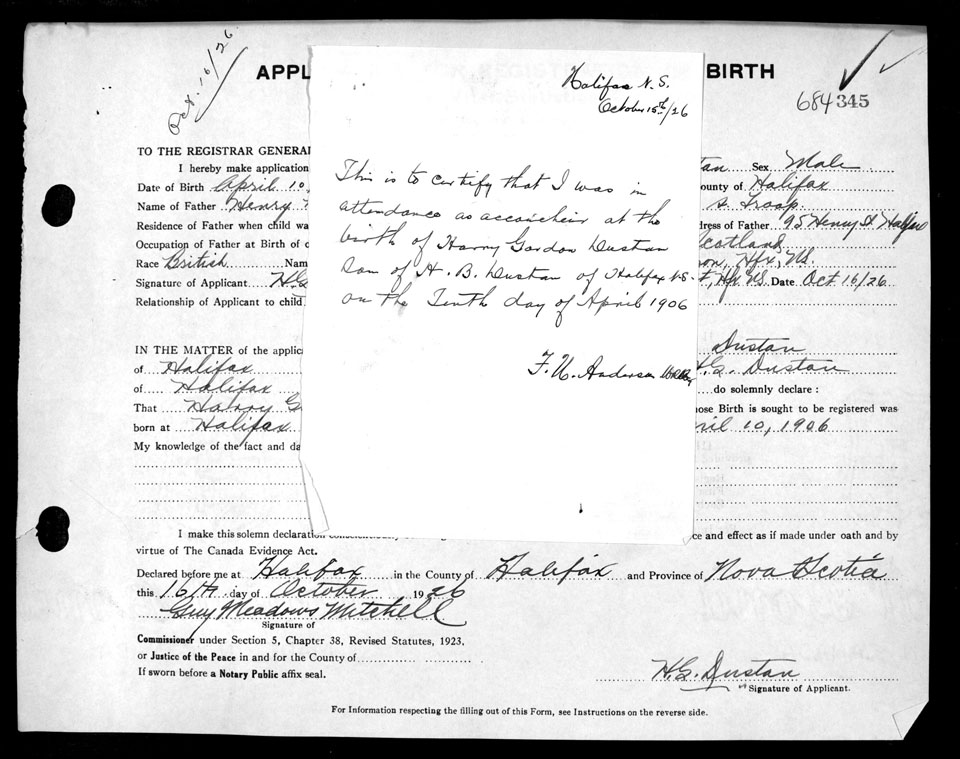 Oct. 16/26
APPL BIRTH
684345
Halifax N. S.
October 15th/26
This is to certify that I was in
attendance as accoucheir at the
birth of Harry Gordon Dustan
Son of H. B. Dustan of Halifax N.S.
on the Tenth day of April 1906
F. U. Anderson
TO THE REGISTRAR GENERAL
I hereby make application tan Sex Male
Date of Birth April 10, ounty of Halifax
Name of Father Henry s. Troop
Residence of Father when child wa dress of Father 95 Henry St Halifax
Occupation of Father at Birth of c Scotland
Race British Nam on, Hfx, NS.
Signature of Applicant HG t, Hfx NS. Date Oct 16/26
Relationship of Applicant to child
IN THE MATTER of the applica Dustan
of Halifax H.G. Dustan
of Halifax do solemnly declare :
That Harry G hose Birth is sought to be registered was
born at Halifax ril 10, 1906
My knowledge of the fact and da
I make this solemn declaration ce and effect as if made under oath and by
virtue of The Canada Evidence Act.
Declared before me at Halifax in the County of Halifax and Province of Nova Scotia
this 16th day of October 1926
Guy Meadows Mitchell
Signature of
Commissioner under Section 5, Chapter 38, Revised Statutes, 1923.
or Justice of the Peace in and for the County of
If sworn before a Notary Public affix seal.
H.G. Dustan
Signature of Applicant.
For Information respecting the filling out of this Form, see Instructions on the reverse side.